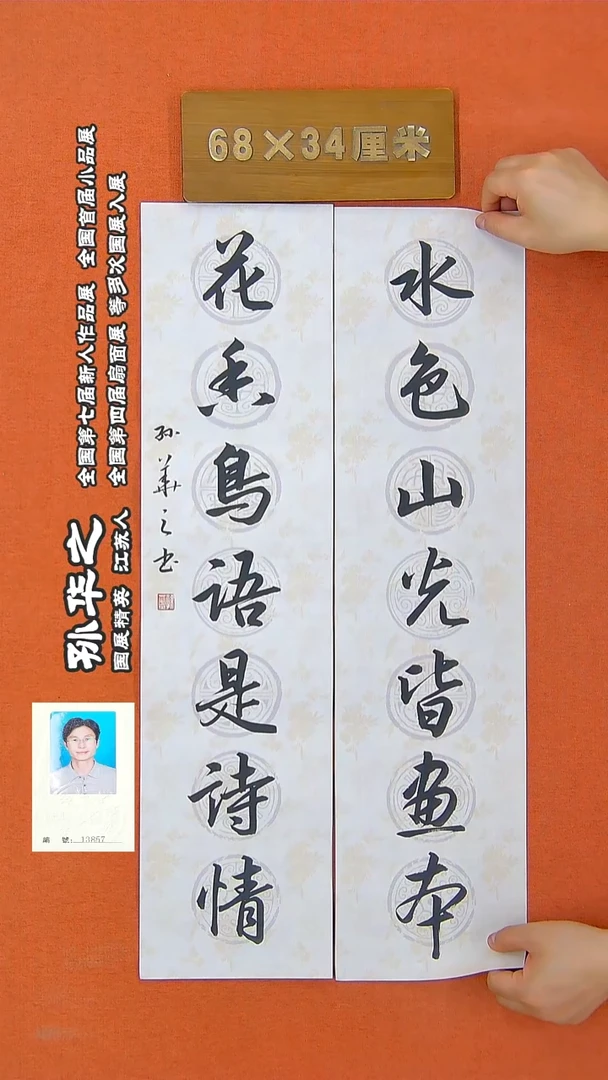 68×34厘米
水色山光皆画本
花香鸟語是詩情
孙華之书
全国第七届新人作品展 全国首届小品展
全国第四届扇面展 等多次国展入展
孙华之
国展精英 江苏人
編 號：13857